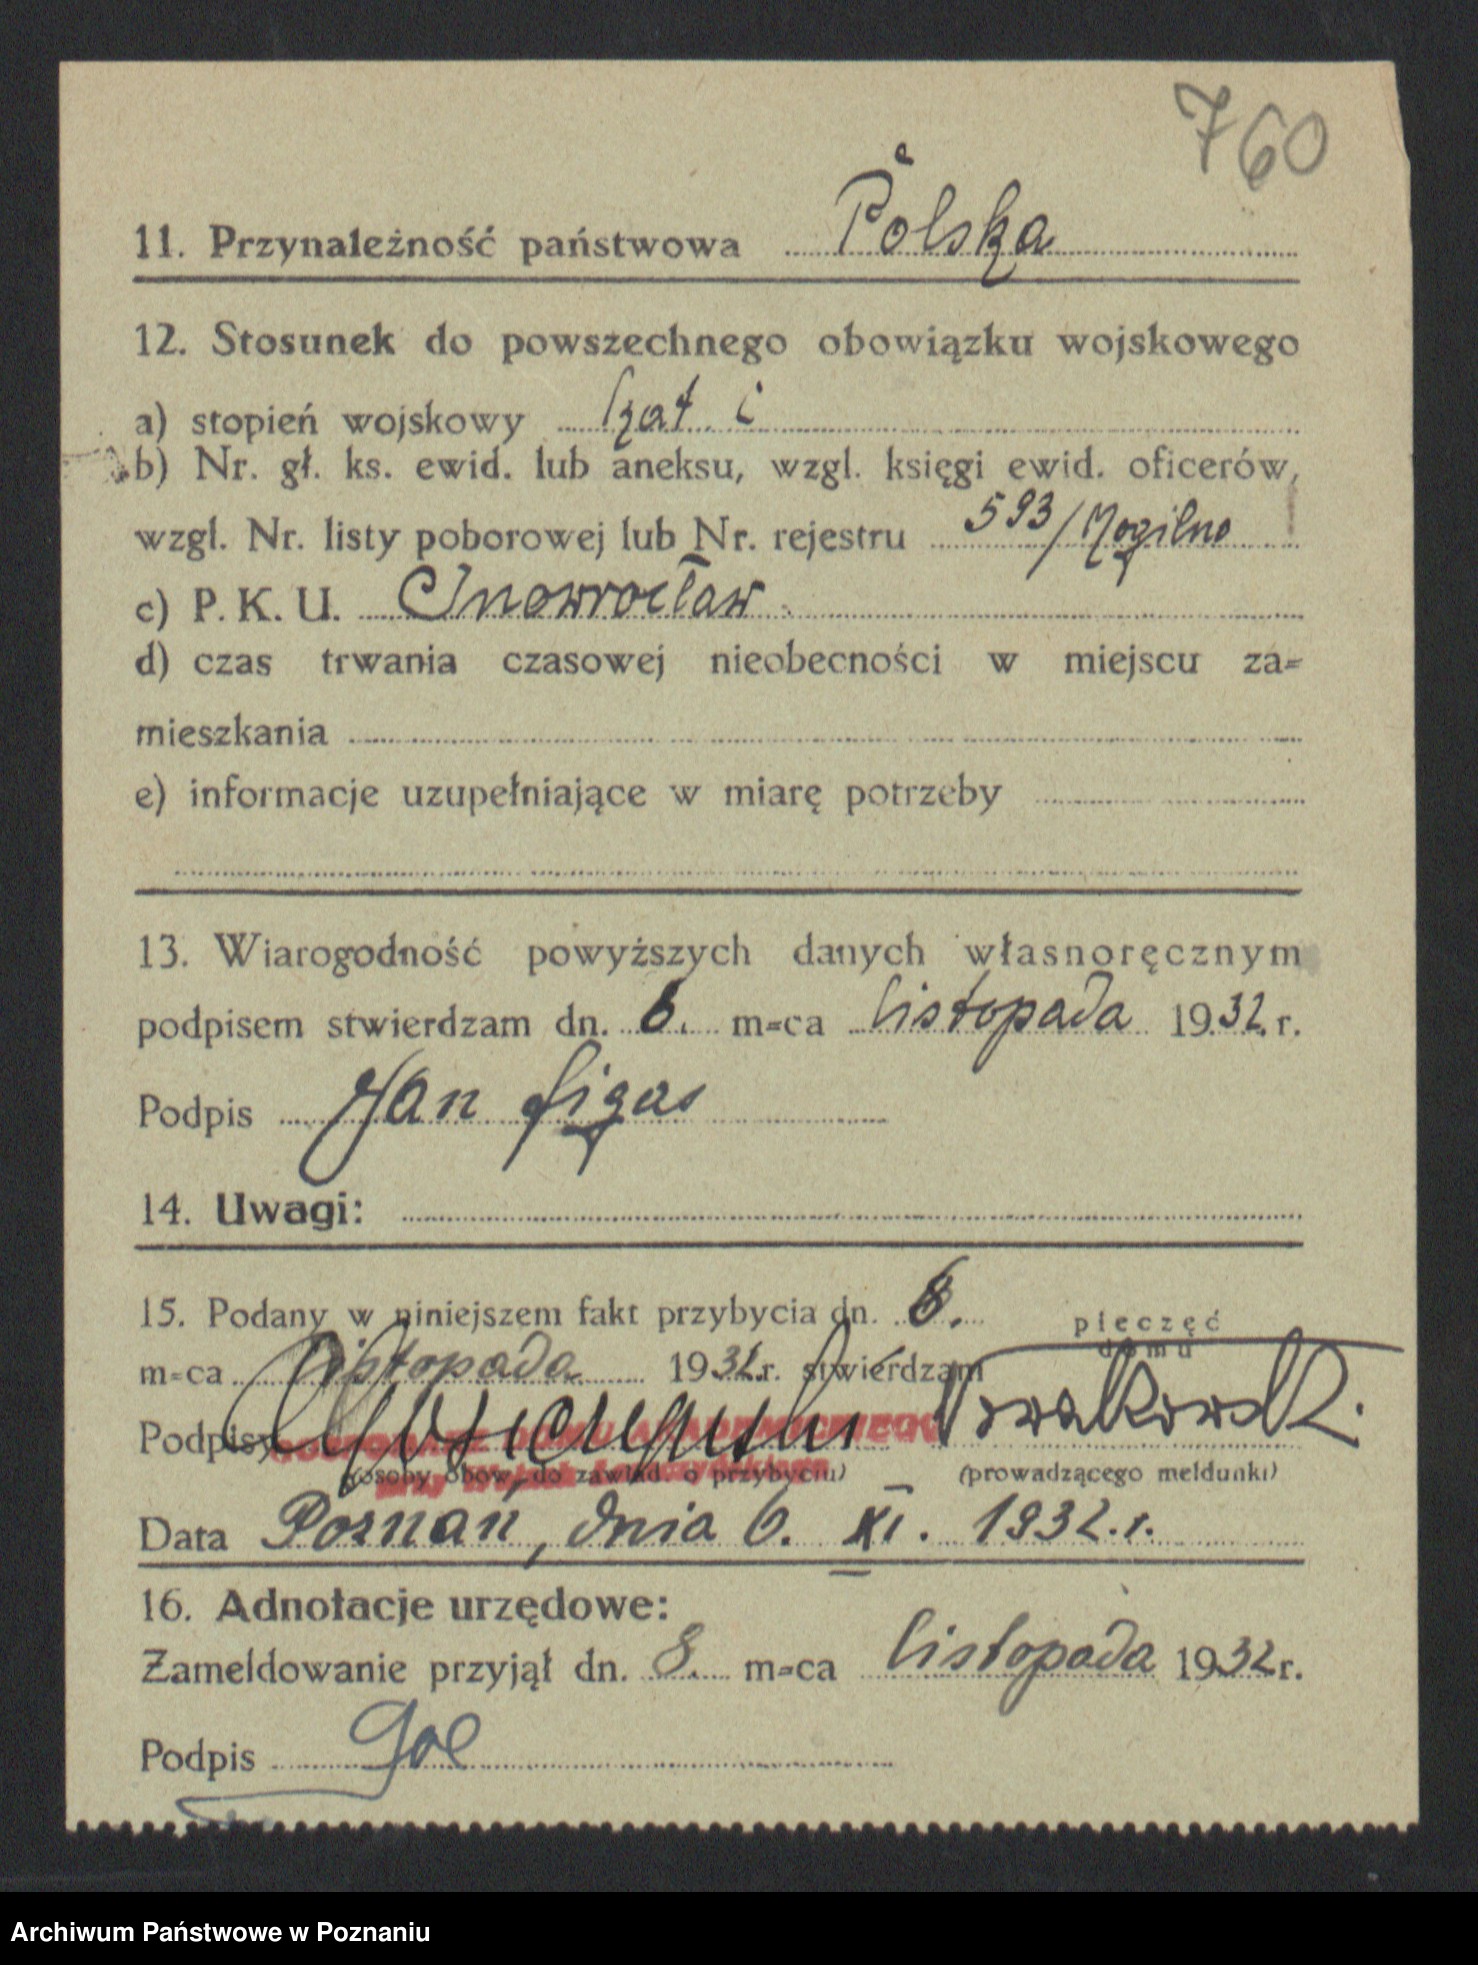 760
11. Przynależność państwowa Polska
12. Stosunek do powszechnego obowiązku wojskowego
a) stopień wojskowy
b) Nr. gł. ks. ewid. lub aneksu, wzgl. księgi ewid. oficerów,
wzgl. Nr. listy poborowej lub Nr. rejestru 593/Mogilno
c) P. K. U. Inowrocław
d) czas trwania czasowej nieobecności w miejscu za=
mieszkania
e) informacje uzupełniające w miarę potrzeby
13. Wiarogodność powyższych danych własnoręcznym
podpisem stwierdzam dn. 6. m=ca listopada 1932. r.
Podpis Jan Figas
14. Uwagi:
15. Podany w niniejszem fakt przybycia dn. 6.
pieczęć
domu
m=ca listopada 1932 r. stwierdzam
Podpisy Nowakowski
GOSPODARZ DOMU AKADEMICKIEGO
(osoby obow. do zawiad. o przybyciu) (prowadzącego meldunki)
Data Poznań, dnia 6. XI. 1932. r.
16. Adnotacje urzędowe:
Zameldowanie przyjął dn. 8. m=ca listopada 1932 r.
Podpis
Archiwum Państwowe w Poznaniu